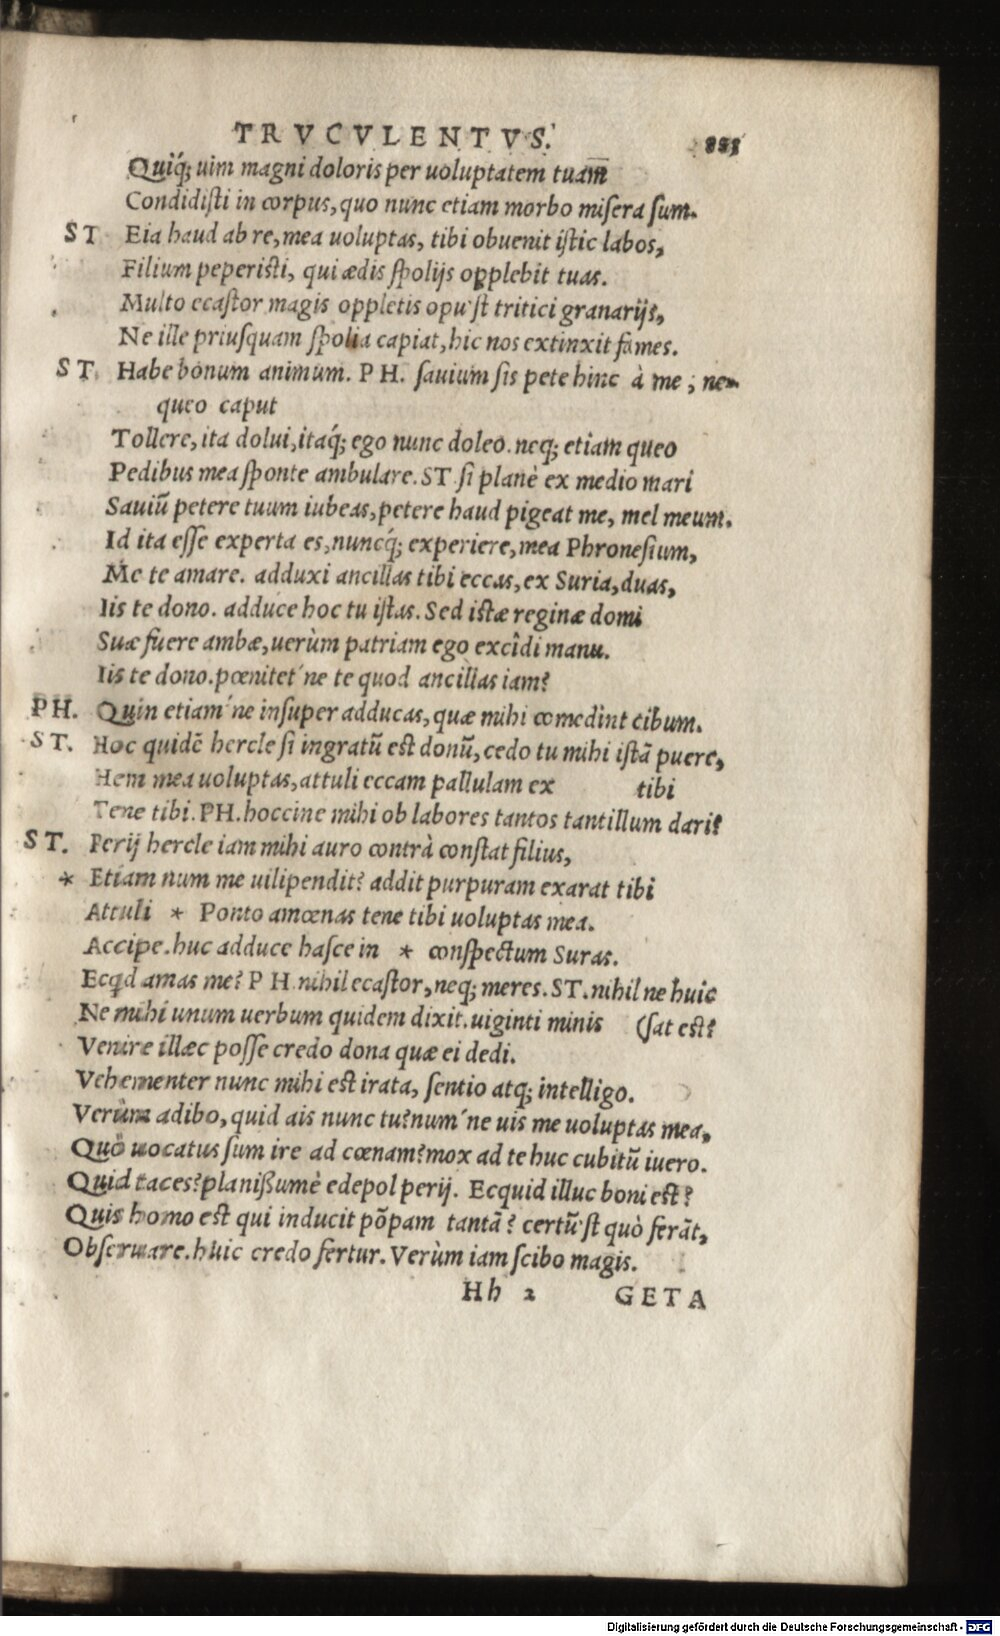 TRVCVLENTVS.
Quiq́; uim magni doloris per uoluptatem tuam
Condidiſti in corpus, quo nunc etiam morbo miſera ſum.
ST Eia haud ab re, mea uoluptas, tibi obuenit iſtic labos,
Filium peperiſti, qui ædis ſpolijs opplebit tuas.
Multo ecaſtor magis oppletis opu'ſt tritici granarijs,
Ne ille priuſquam ſpolia capiat, hic nos extinxit fames.
ST. Habe bonum animum. PH. ſauium ſis pete hinc à me; ne-
queo caput
Tollere, ita dolui, itaq́; ego nunc doleo. neq; etiam queo
Pedibus mea ſponte ambulare. ST. ſi planè ex medio mari
Sauiū petere tuum iubeas, petere haud pigeat me, mel meum.
Id ita eſſe experta es, nuncq́; experiere, mea Phroneſium,
Me te amare. adduxi ancillas tibi eccas, ex Suria, duas,
Iis te dono. adduce hoc tu iſtas. Sed iſtæ reginæ domi
Suæ fuere ambæ, uerùm patriam ego excîdi manu.
Iis te dono. pœnitet'ne te quod ancillas iam?
PH. Quin etiam'ne inſuper adducas, quæ mihi comedint cibum.
ST. Hoc quidē hercle ſi ingratū eſt donū, cedo tu mihi iſtā puere,
Hem mea uoluptas, attuli eccam pallulam ex tibi
Tene tibi. PH. hoccine mihi ob labores tantos tantillum dari?
ST. Perij hercle iam mihi auro contrà conſtat filius,
* Etiam num me uilipendit? addit purpuram exarat tibi
Attuli * Ponto amœnas tene tibi uoluptas mea.
Accipe. huc adduce haſce in * conſpectum Suras.
Ecqd amas me? PH nihil ecaſtor, neq; meres. ST. nihil ne huic
Ne mihi unum uerbum quidem dixit. uiginti minis (ſat eſt?
Venire illæc poſſe credo dona quæ ei dedi.
Vehementer nunc mihi eſt irata, ſentio atq; intelligo.
Verùm adibo, quid ais nunc tu? num'ne uis me uoluptas mea,
Quò uocatus ſum ire ad cœnam? mox ad te huc cubitū iuero.
Quid taces? planißumè edepol perij. Ecquid illuc boni eſt?
Quis homo eſt qui inducit pōpam tantā? certū'ſt quò ferāt,
Obſeruare. huic credo fertur. Verùm iam ſcibo magis.
Hh 2 GETA
Digitalisierung gefördert durch die Deutsche Forschungsgemeinschaft - DFG